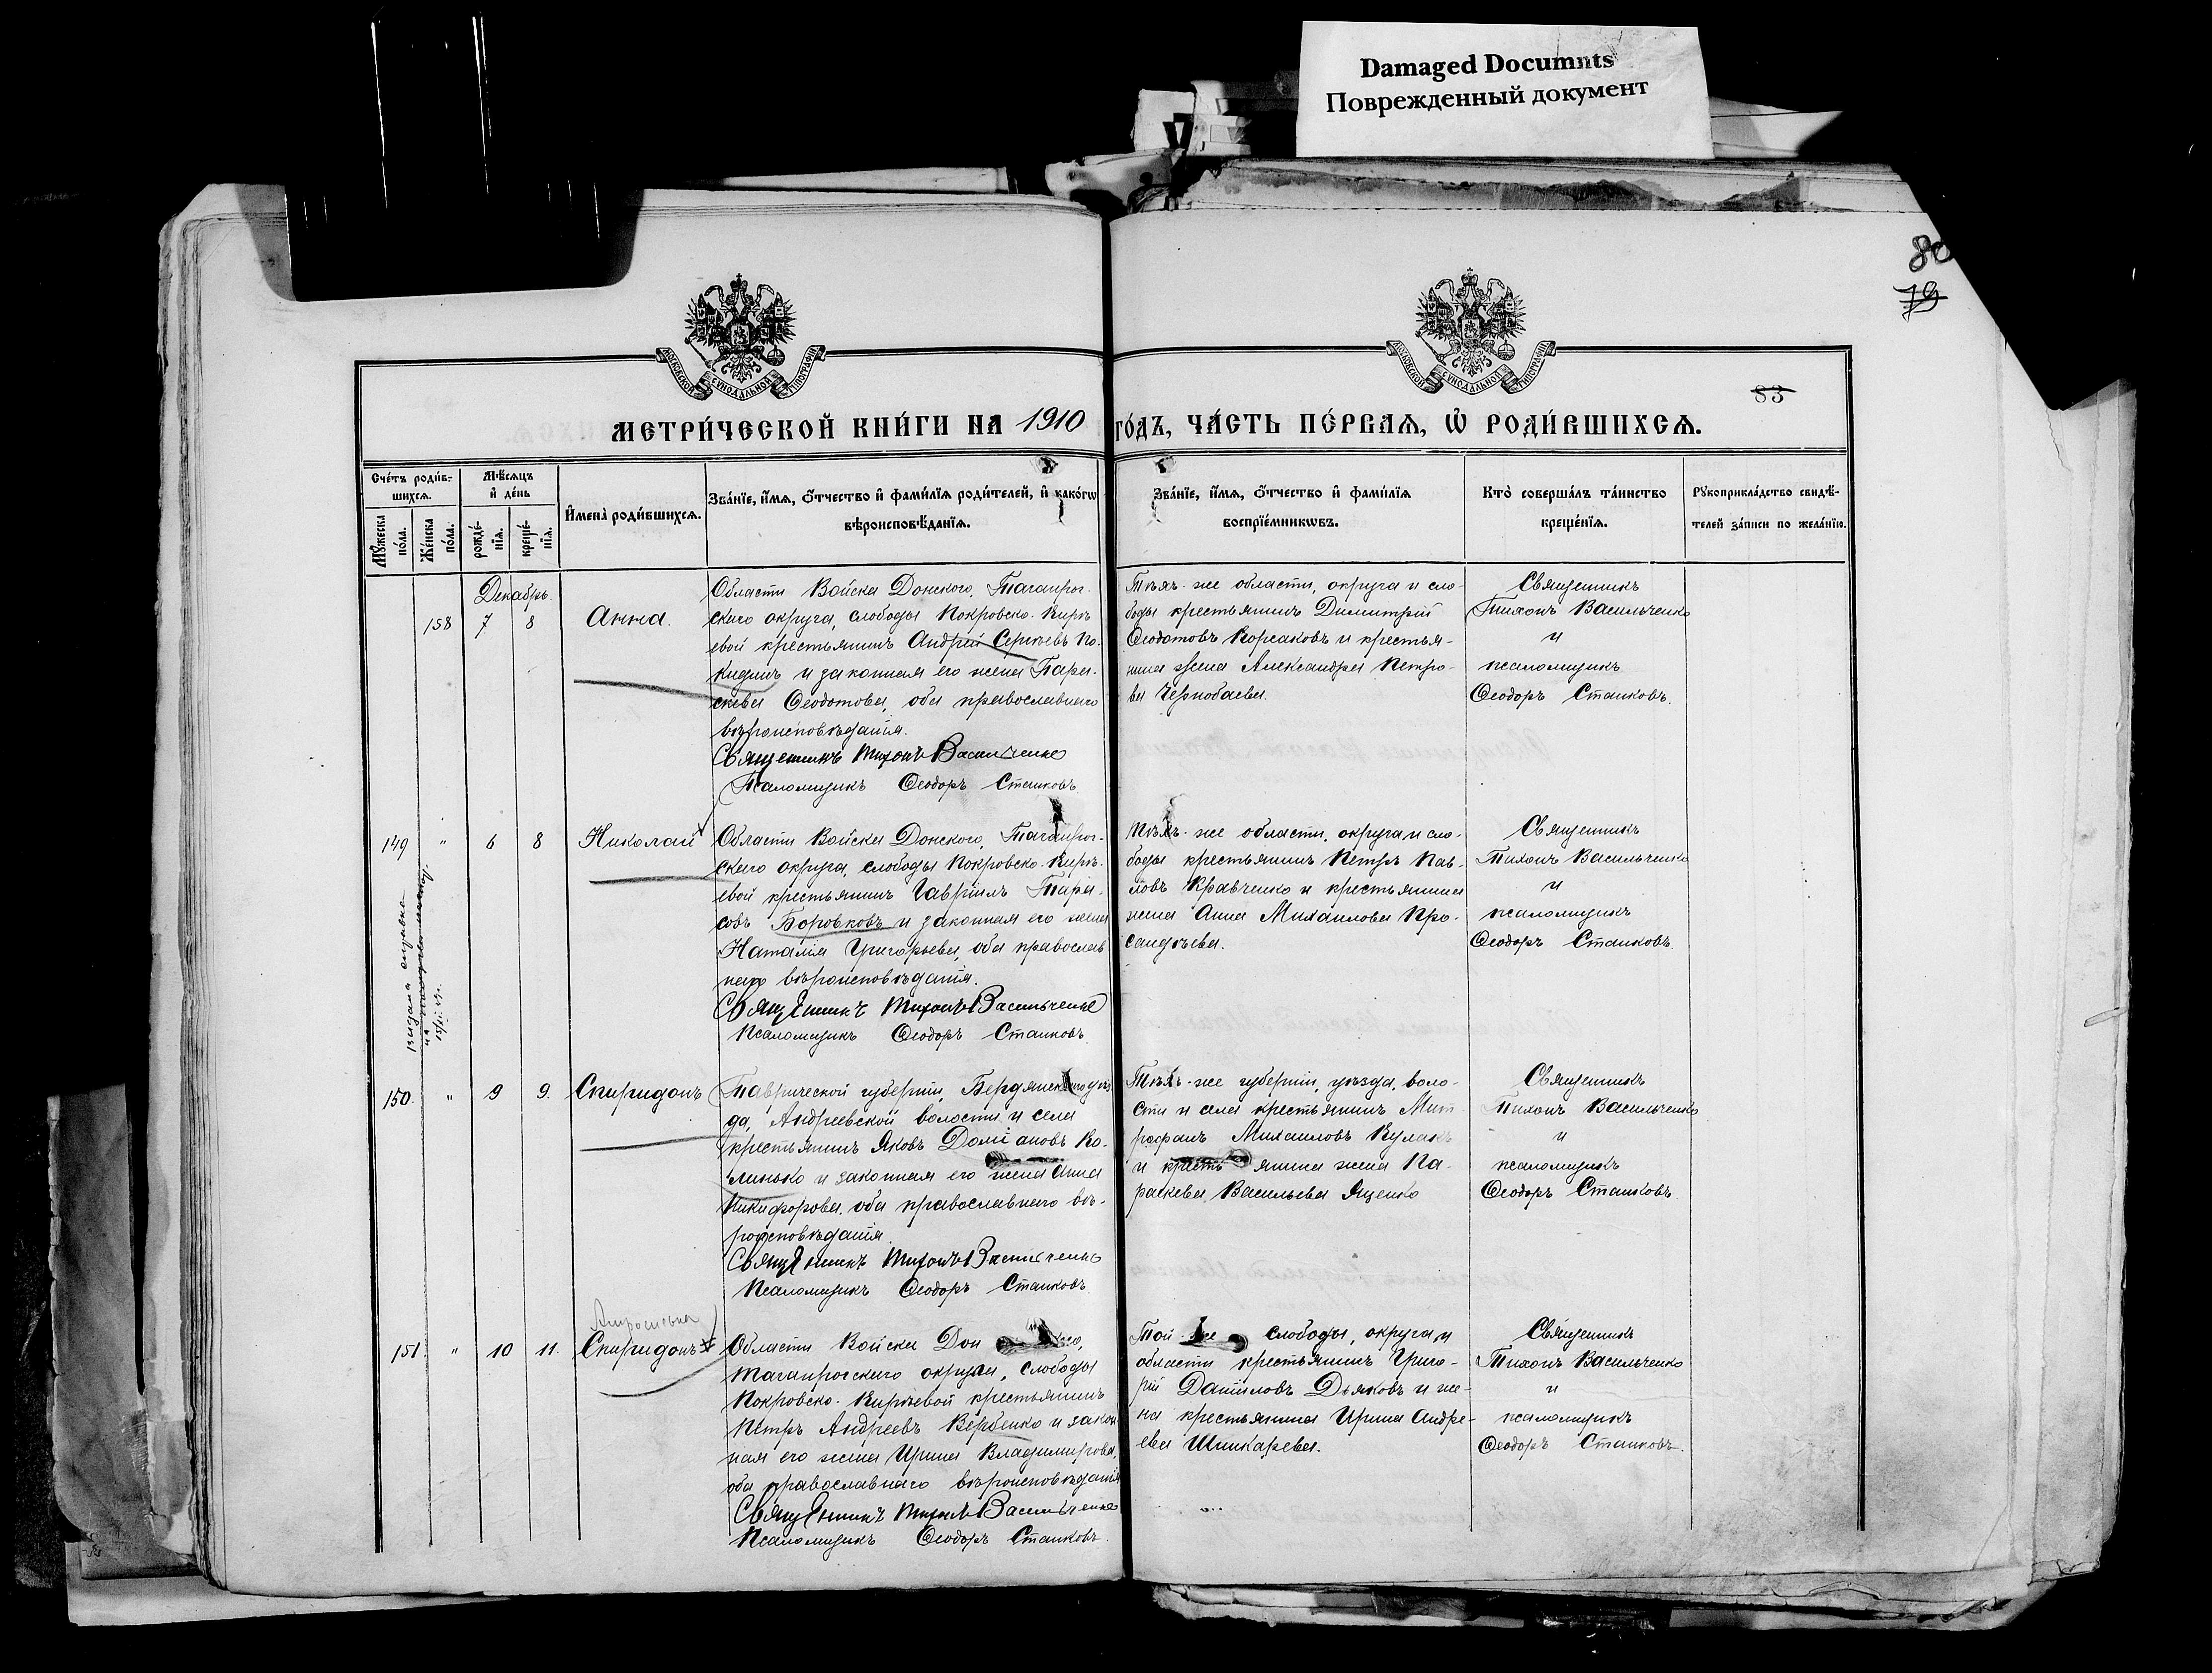 Damaged Documnts
Поврежденный документ
80
79
83
МОСКОВСКОЙ СУНОДАЛЬНОЙ ТИПОГРАФІИ
МОСКОВСКОЙ СУНОДАЛЬНОЙ ТИПОГРАФІИ
МЕТРИ́ЧЕСКОЙ КНИ́ГИ НА 1910 ГО́ДЪ, ЧА́СТЬ ПЕ́РВАѦ, Ѡ҆ РОДИ́ВШИХСѦ.
Сче́тъ роди́в-
шихсѧ.
Мꙋ́жеска по́ла.
Же́нска по́ла.
Мѣ́сѧцъ
и҆ де́нь
рожде́-
нїѧ.
креще́-
нїѧ.
И҆мена̀ роди́вшихсѧ.
Зва́нїе, и҆́мѧ, ѻ҆́тчество и҆ фами́лїѧ роди́телей, и҆ како́гѡ
вѣроисповѣ́данїѧ.
Зва́нїе, и҆́мѧ, ѻ҆́тчество и҆ фами́лїѧ
воспрїе́мникѡвъ.
Кто̀ соверша́лъ та́инство
креще́нїѧ.
Рꙋкоприкла́дство свидѣ́-
телей за́писи по жела́нїю.
Декабрь.
158 7 8 Анна.
Области Войска Донского, Таганрог-
скаго округа, слободы Покровско-Кирѣ-
евой крестьянинъ Андрей Сергѣевъ По-
кидинъ и законная его жена Пара-
скева Ѳеодотова, оба православнаго
вѣроисповѣданія.
Священникъ Тихонъ Васильченко
Псаломщикъ Ѳеодоръ Станковъ.
Тѣхъ-же области, округа и сло-
боды крестьянинъ Димитрій
Ѳеодотовъ Корсаковъ и крестья-
нина жена Александра Петро-
ва Чернобаева.
Священникъ
Тихонъ Васильченко
и
псаломщикъ
Ѳеодоръ Станковъ.
149 " 6 8 Николай
выдана справка
Области Войска Донского, Таганрог-
скаго округа, слободы Покровско-Кирѣ-
евой крестьянинъ Гавріилъ Тара-
совъ Боровковъ и законная его жена
Наталія Григорьева, оба православ
наго вѣроисповѣданія.
Священникъ Тихонъ Васильченко
Псаломщикъ Ѳеодоръ Станковъ.
Тѣхъ-же области, округа и сло-
боды крестьянинъ Петръ Пав-
ловъ Кравченко и крестьянина
жена Анна Михаилова Про-
сандѣева.
Священникъ
Тихонъ Васильченко
и
псаломщикъ
Ѳеодоръ Станковъ.
150. " 9 9. Спиридонъ
Таврической губерніи, Бердянскаго уѣз
да, Андреевской волости и села
крестьянинъ Яковъ Доміановъ Ко-
линько и законная его жена Анна
Никифорова, оба православнаго вѣ-
роисповѣданія.
Священникъ Тихонъ Васильченко
Псаломщикъ Ѳеодоръ Станковъ
Тѣхъ-же губерніи, уѣзда, воло-
сти и села крестьянинъ Мит
рофанъ Михаиловъ Кулакъ
и крестьянина жена Па-
раскева Васильева Яценко
Священникъ
Тихонъ Васильченко
и
псаломщикъ
Ѳеодоръ Станковъ.
151. " 10 11. Спиридонъ
Области Войска Дон
Таганрогскаго округа, слободы
Покровско-Кирѣевой крестьянинъ
Петръ Андреевъ Вербенко и закон
ная его жена Ирина Владимирова,
оба православнаго вѣроисповѣданія
Священникъ Тихонъ Васильченко
Псаломщикъ Ѳеодоръ Станковъ.
Той-же слободы, округа и
области крестьянинъ Григо-
рій Даниловъ Дьяковъ и же-
на крестьянина Ирина Андре-
ева Шинкарева.
Священникъ
Тихонъ Васильченко
и
псаломщикъ
Ѳеодоръ Станковъ.